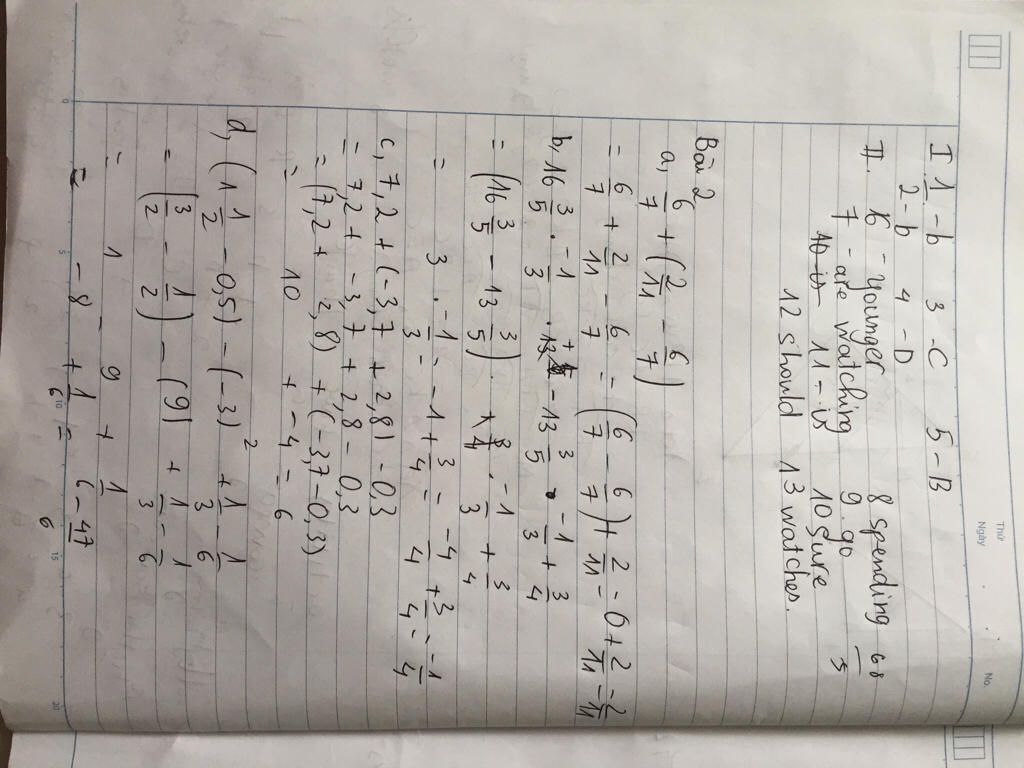 Thứ
Ngày
No.
I 1 - b 3 - C 5 - B
2 - b 4 - D
II. 6 - younger 8 spending
7 - are watching 9. go
11 - is 10 sure
12 should 13 watches.
Bài 2
a, 6/7 + (2/11 - 6/7)
= 6/7 + 2/11 - 6/7 = (6/7 - 6/7) + 2/11 = 0 + 2/11 = 2/11
b, 16 3/5 . -1/3 - 13 3/5 . -1/3 + 3/4
= (16 3/5 - 13 3/5) . -1/3 + 3/4
= 3 . -1/3 = -1 + 3/4 = -4/4 + 3/4 = -1/4
c, 7,2 + (-3,7 + 2,8) - 0,3
= 7,2 + -3,7 + 2,8 - 0,3
= (7,2 + 2,8) + (-3,7 - 0,3)
= 10 + -4 = 6
d, (1 1/2 - 0,5) - (-3)² + 1/3 - 1/6
= (3/2 - 1/2) - (9) + 1/3 - 1/6
= 1 - 9 + 1/6
= -8 + 1/6 = (-47/6
0 5 10 15 20